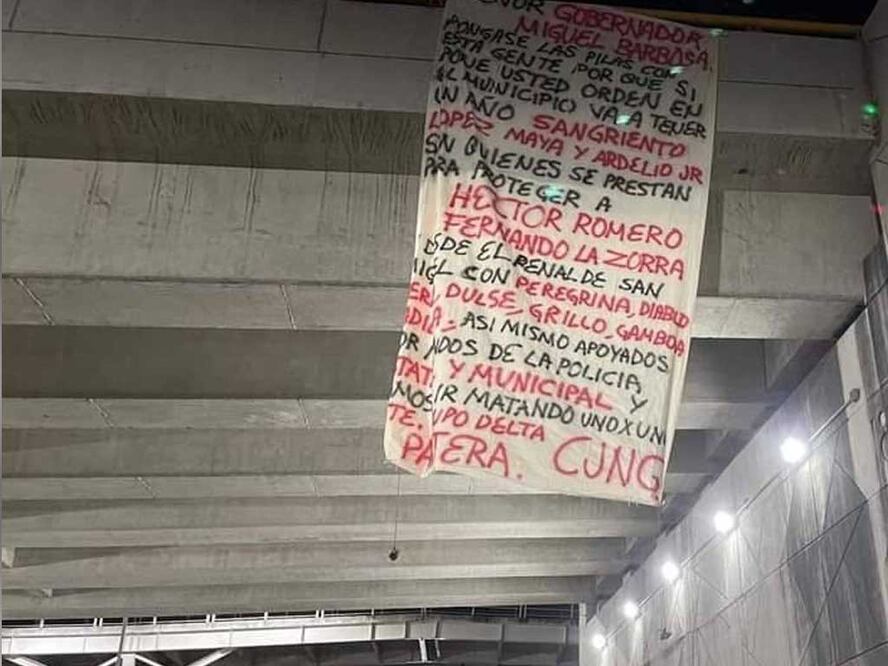 GOBERNADOR
MIGUEL BARBOSA.
PONGASE LAS PILAS CON
ESTA GENTE POR QUE SI
PONE USTED ORDEN EN
EL MUNICIPIO VA A TENER
UN AÑO SANGRIENTO
LOPEZ MAYA Y ARDELIO JR
SN QUIENES SE PRESTAN
PRA PROTEGER A
HECTOR ROMERO
FERNANDO LA ZORRA
SDE EL PENAL DE SAN
CON PEREGRINA, DIABLO
DULSE, GRILLO, GAMBOA
ASI MISMO APOYADOS
DOS DE LA POLICIA
Y MUNICIPAL Y
IR MATANDO UNO X UN
UPO DELTA
CJNG